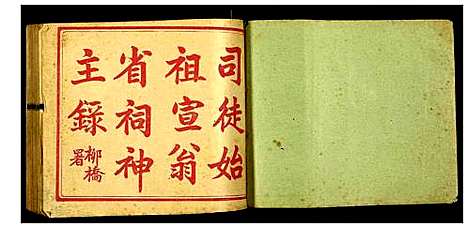 司徒始
祖宣翁
省祠神
主錄
柳橋
署